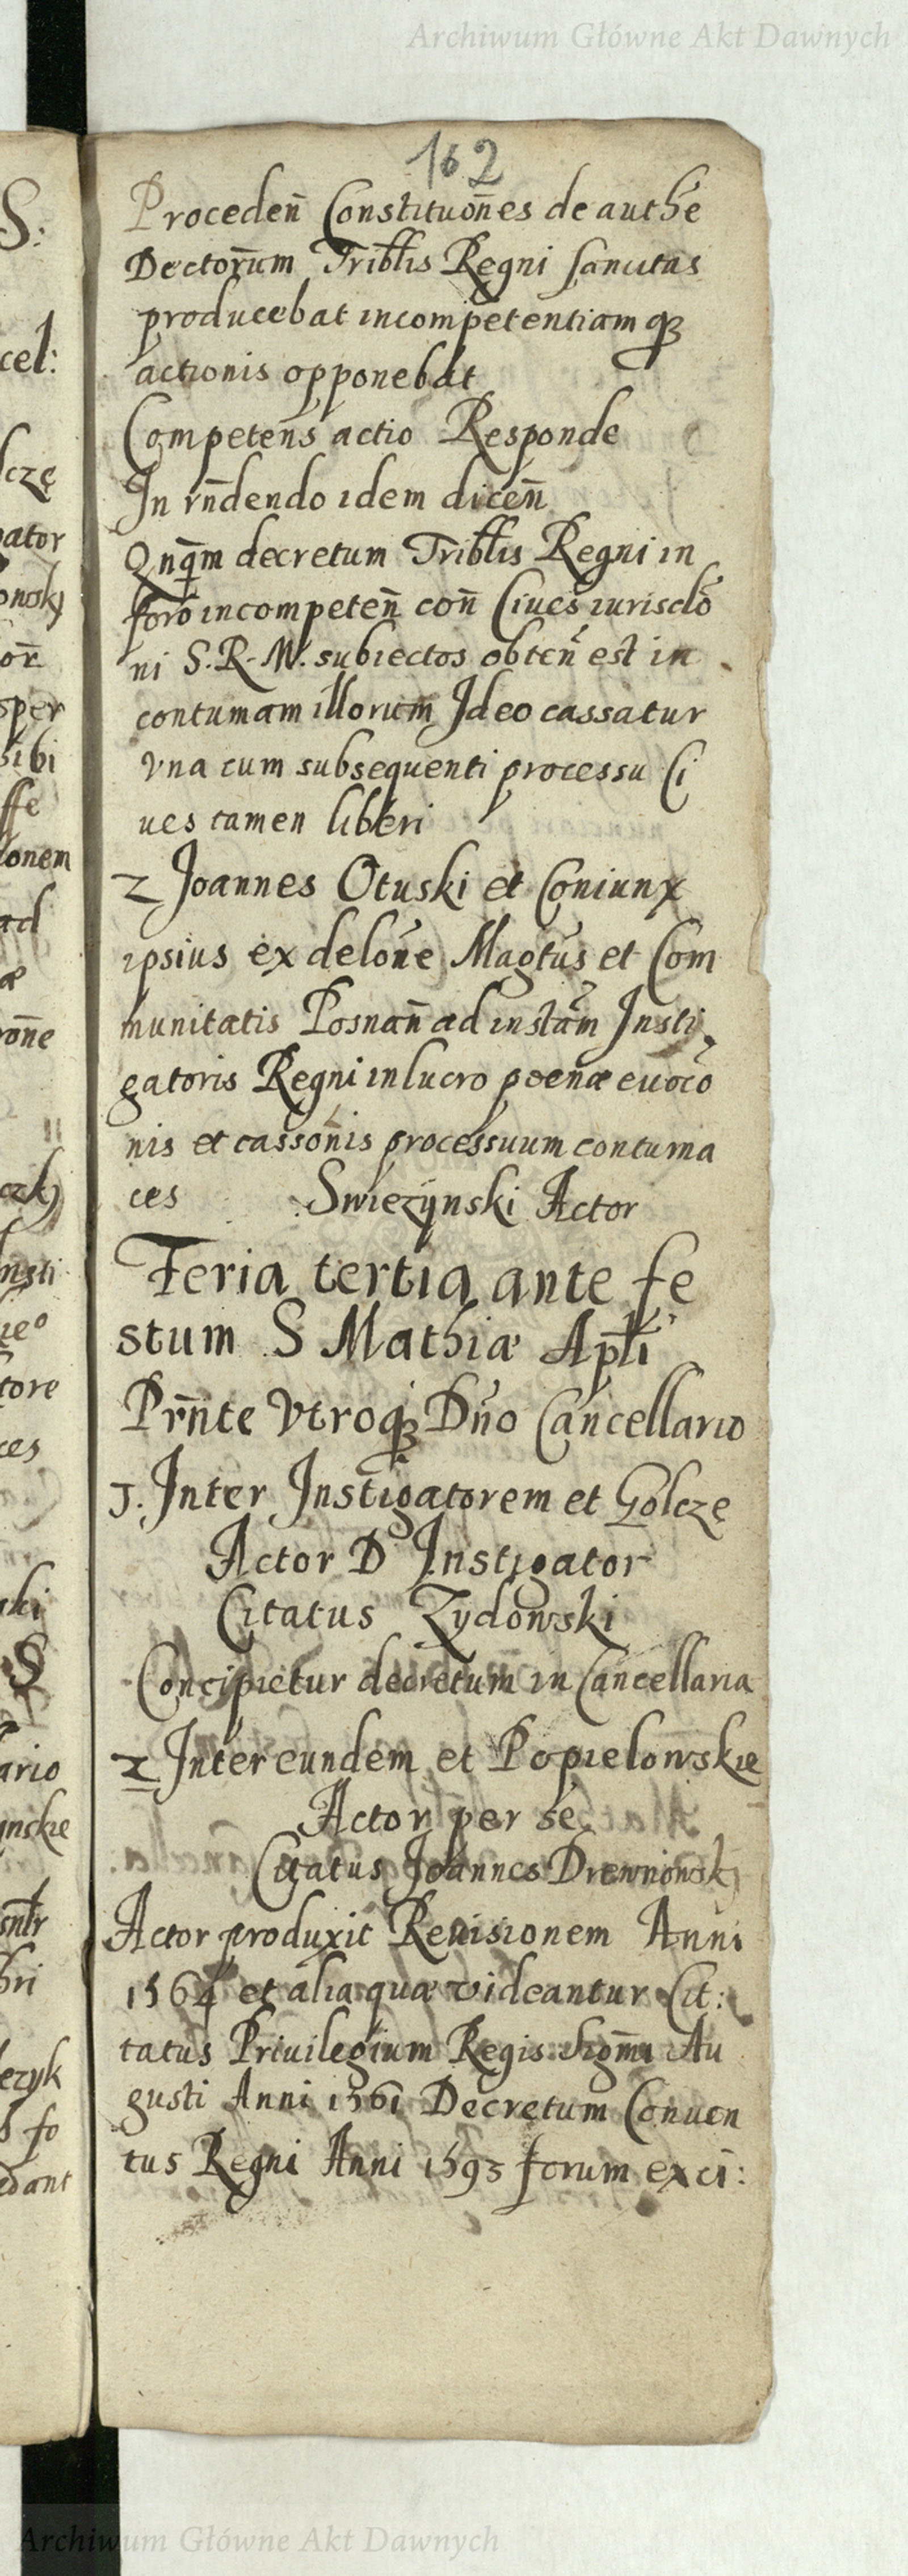 Archiwum Główne Akt Dawnych
162
Proceden̄ Constituon̄es de authē
Decretorum Triblis Regni sancitas
producebat incompetentiamq₃
actionis opponebat
Competens actio Responde
In rn̄dendo idem dicen̄
Qnqm̄ decretum Triblis Regni in
foro incompeten̄ con̄ Ciues iurisdō
ni S. R. M. subiectos obten̄ est in
contumam illorum Ideo cassatur
vna cum subsequenti processu Ci
ues tamen liberi
2 Joannes Otuski et Coniunx
ipsius ex delōne Magtūs et Com
munitatis Posnan̄ ad instām Insti
gatoris Regni in lucro poenæ euocō
nis et cassonis processuum contuma
ces Swiezynski Actor
Feria tertia ante fe
stum S Mathiæ Apli
Prn̄te vtroq₃ Dn̄o Cancellario
J. Inter Instigatorem et Golcze
Actor D Instigator
Citatus Zydowski
Concipietur decretum in Cancellaria
2 Inter eundem et Popielowskie
Actor per se
Citatus Joannes Drewnowsky
Actor produxit Reuisionem Anni
1564 et alia quæ videantur Cit:
tatus Priuilegium Regis Sigm̄ Au
gusti Anni 1561 Decretum Conuen
tus Regni Anni 1593 forum exci:
S:
cel:
lczę
onem
ad
tore
ces
ski
S
ario
ynskie
edant
Archiwum Główne Akt Dawnych